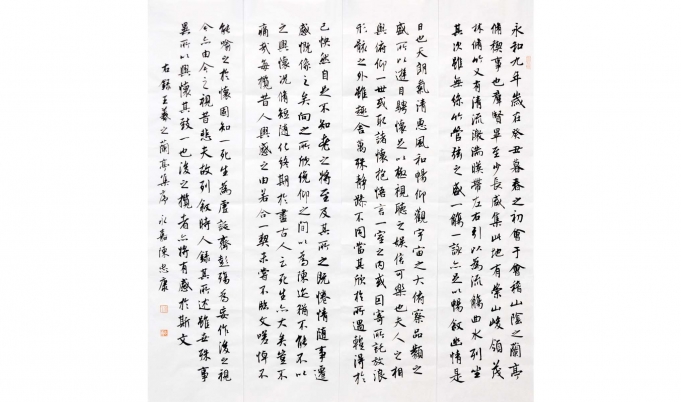 永和九年歲在癸丑暮春之初會于會稽山陰之蘭亭
脩禊事也羣賢畢至少長咸集此地有崇山峻領茂
林脩竹又有清流激湍暎帶左右引以為流觴曲水列坐
其次雖無絲竹管弦之盛一觴一詠亦足以暢敘幽情是
日也天朗氣清惠風和暢仰觀宇宙之大俯察品類之
盛所以遊目騁懷足以極視聽之娛信可樂也夫人之相
與俯仰一世或取諸懷抱悟言一室之内或因寄所託放浪
形骸之外雖趣舍萬殊靜躁不同當其欣於所遇暫得於
己怏然自足不知老之將至及其所之既惓情隨事遷
感慨係之矣向之所欣俛仰之間以為陳迹猶不能不以
之興懷況脩短隨化終期於盡古人云死生亦大矣豈不
痛哉每攬昔人興感之由若合一契未嘗不臨文嗟悼不
能喻之於懷固知一死生為虛誕齊彭殤為妄作後之視
今亦由今之視昔悲夫故列敘時人錄其所述雖世殊事
異所以興懷其致一也後之攬者亦將有感於斯文
右錄王羲之蘭亭集序 永嘉陳忠康